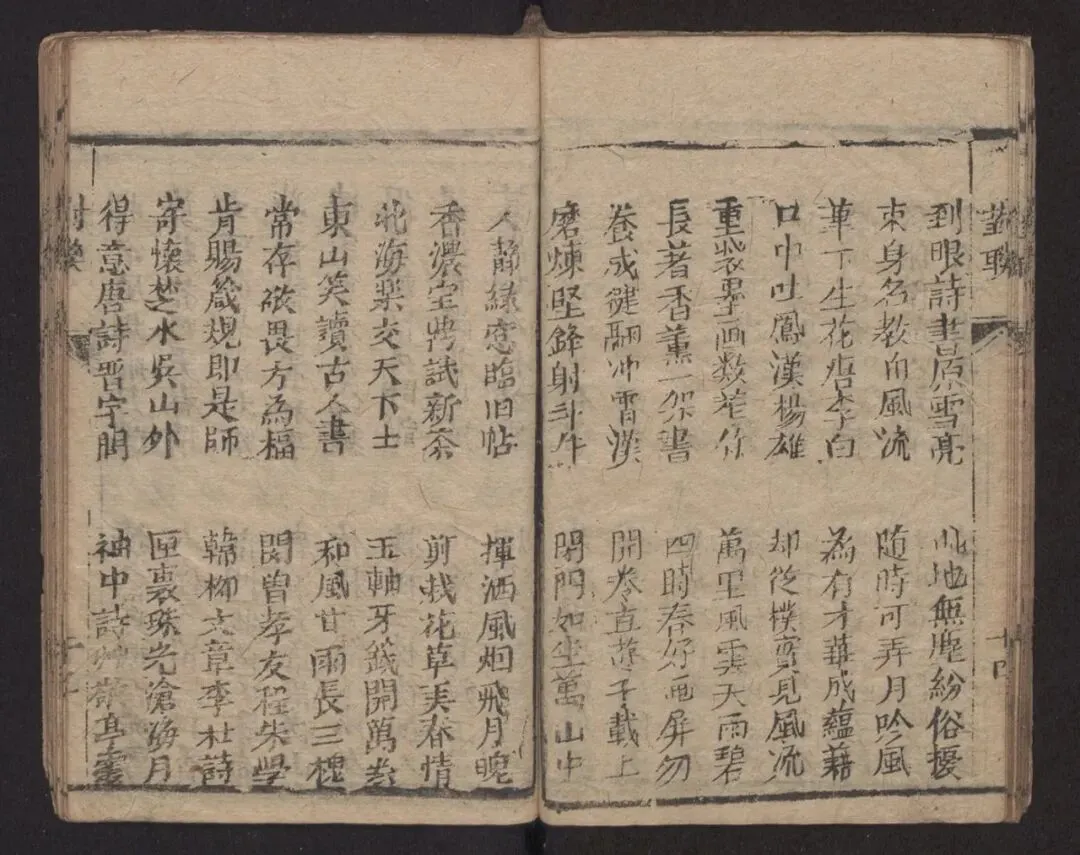 對聯
十四
到眼詩書原雪亮
束身名教自風流
筆下生花唐李白
口中吐鳳漢楊雄
重裝墨画数竿竹
長著香薰一架書
養成健翮冲霄漢
磨煉堅鋒射斗牛
此地無塵紛俗擾
随時可弄月吟風
為有才華成蘊藉
却從樸實見風流
萬里風雲天雨碧
四時春好画屏勿
開卷直遊千載上
閉門如坐萬山中
人静緑窓臨旧帖
香濃宝試新茶
北海樂交天下士
東山笑讀古人書
常存敬畏方為福
肯賜箴規即是師
寄懷楚水吳山外
得意唐詩晋字間
揮洒風烟飛月晚
剪裁花草美春情
玉軸牙籖開萬卷
和風甘雨長三槐
閔曾孝友程朱學
韓柳文章李杜詩
匣裏珠光滄海月
袖中詩